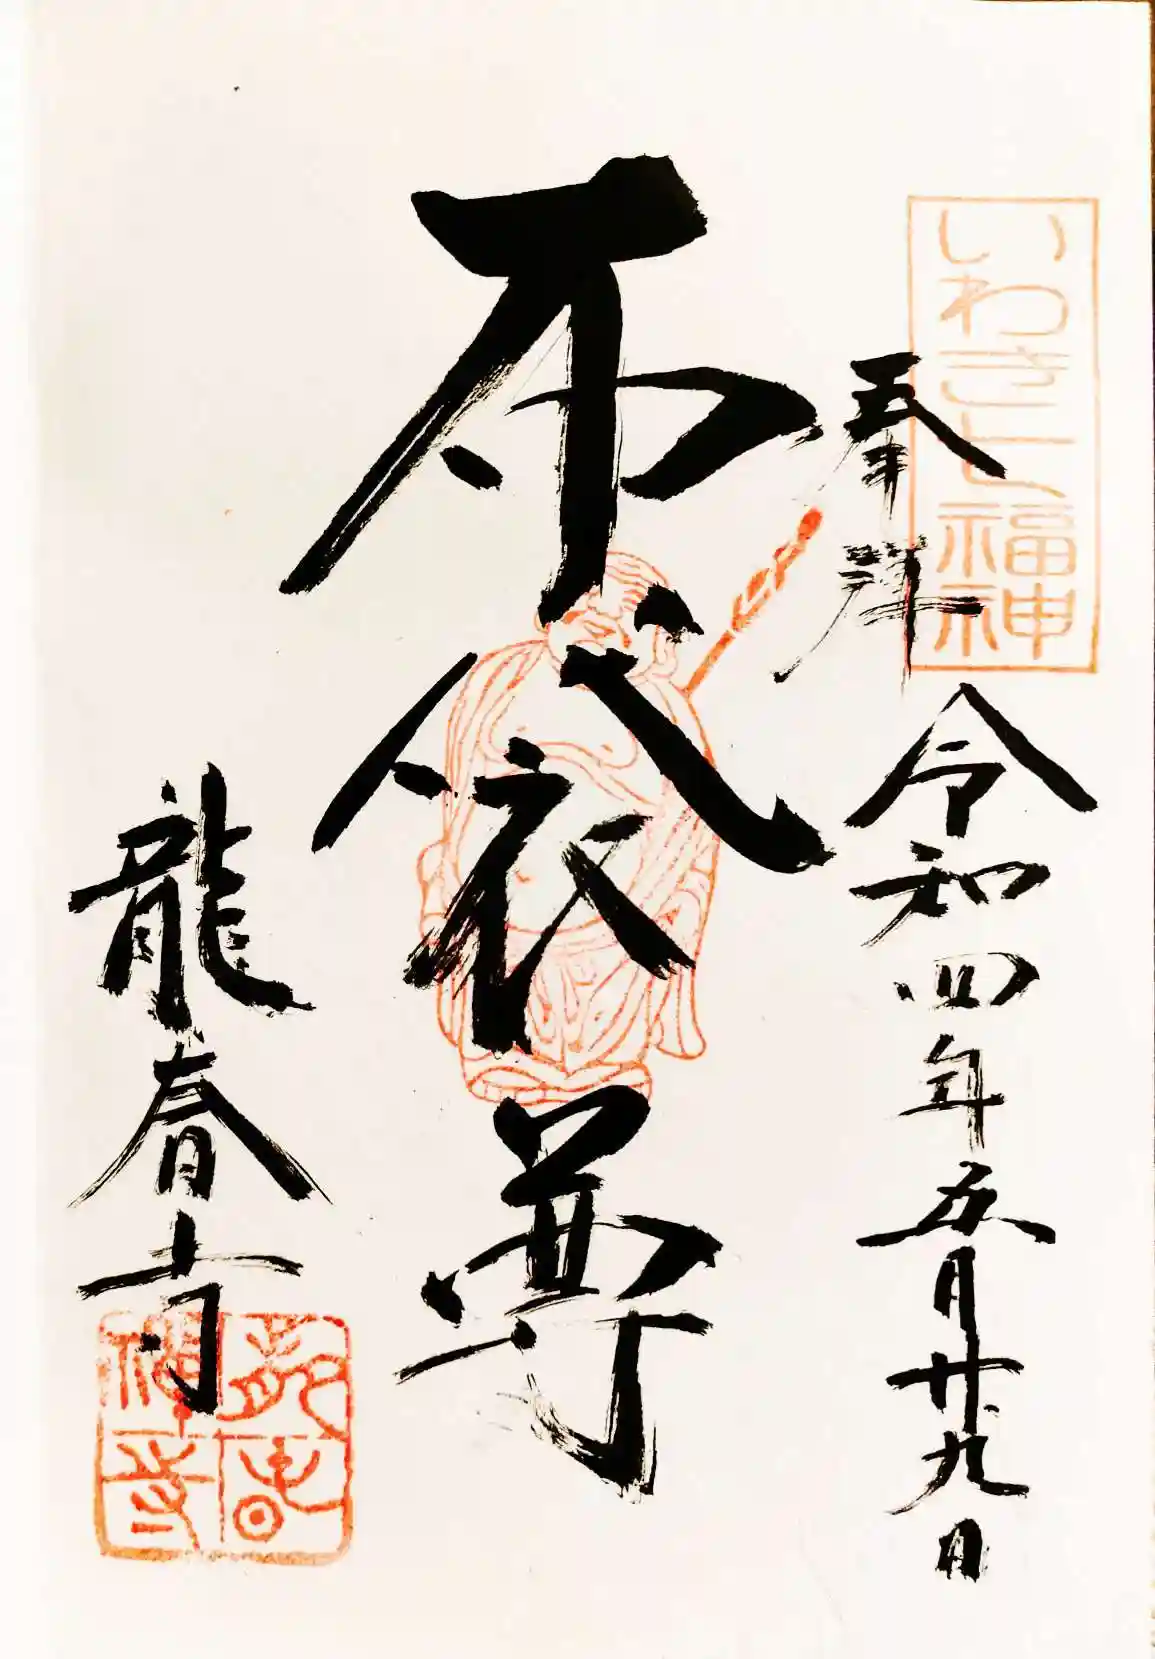 いわき七福神
奉拝
令和四年五月廿九日
布袋尊
龍春寺